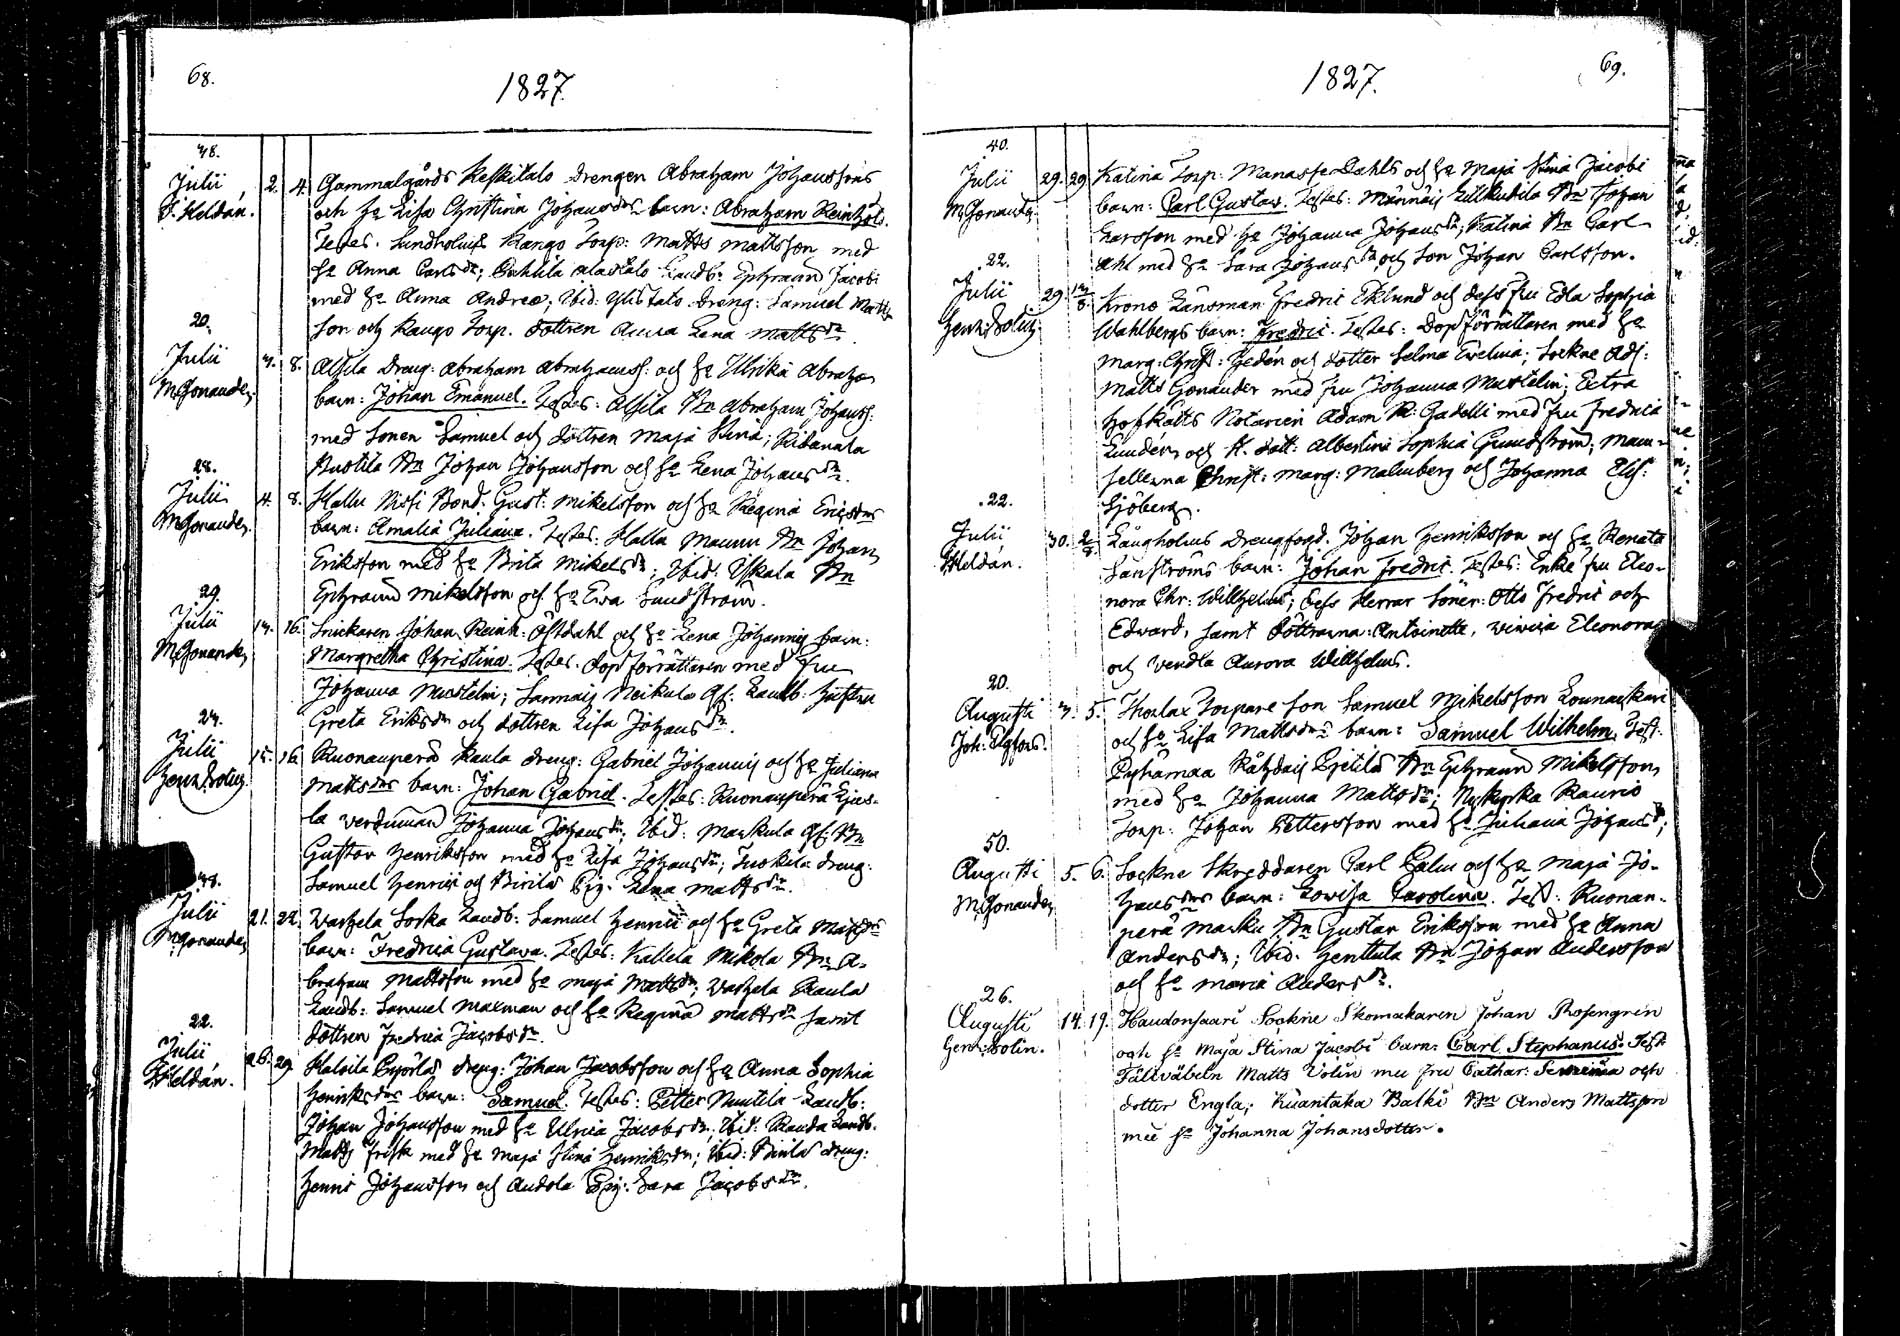 68.
1827.
48.
Julii 2. 4. Gammalgårds Keskitalo Drengen Abraham Johanssons
Heldán. och h: Lisa Christina Johans dr barn: Abraham Reinhold.
Testes. Lindholms Kango Torp: Matts Mattsson med
h: Anna Carls dr; Alastalo Landb: Ephraim Jacobi
med h: Anna Andreæ; Ibid: Ylistalo Dreng: Samuel Matts
son och Kango Torp. dottren Anna Lena Matts dr
20.
Julii 7. 8. Alsila Dreng: Abraham Abrahamss: och h: Ulrika Abrah
M. Gonander. barn: Johan Emanuel. Testes: Alsila Bn Abraham Johanss:
med Sonen Samuel och dottren Maja Stina; Ridanala
Anotila Bn Johan Johansson och h: Lena Johans dr.
28.
Julii 4. 8. Hallu Bond: Gust: Mikelsson och h: Regina Erics drs
M. Gonander. barn: Amalia Juliana. Testes: Hallu Maunu Bn Johan
Eriksson med h: Brita Mikels dr; Ibid: Yskala Bn
Ephraim Mikelsson och h: Eva Sundström.
29.
Julii 14. 16. Snickaren Johan Reinh: Östdahl och h: Lena Johannis barn:
M. Gonander Margretha Christina. Testes. Dopförrättaren med Fru
Johanna Mastelin; Sannais Neikula Landb: hustru
Greta Eriks dr och dottren Lisa Johans dr.
27.
Julii 15. 16. Ruonanperä Kaula Dreng: Gabriel Johannis och h: Juliana
Henr. Bolin. Matts drs barn: Johan Gabriel. Testes: Ruonanperä
la Johanna Johans dr; Ibid: Markula Bn
Gustav Henriksson med h: Lisa Johans dr; Tuokila Dreng:
Samuel Henrici och Birila Pig: Lena Matts dr.
48.
Julii 21. 22. Varhela Sorka Landb: Samuel Henrici och h: Greta Matts drs
M. Gonander barn: Fredrica Gustava. Testes: Kallela Mikola Bn A-
braham Mattsson med h: Maja Matts dr; Varhela Kaula
Landb: Samuel Maxman och h: Regina Matts dr samt
dottren Fredrica Jacobs dr.
22.
Julii 26. 29. Kalsila Pyörlä dreng: Johan Jacobsson och h: Anna Sophia
Heldán. Henriks drs barn: Samuel. Testes: Petter Nuutila Landb:
Johan Johansson med h: Ulrica Jacobs dr; Ibid: Kauda Landb.
Matts Frisk med h: Maja Stina Henriks dr; Ibid: Birila dreng:
Henric Johansson och Andola Pig: Sara Jacobs dr.
69.
1827.
40.
Julii 29. 29 Katina Torp: Manasse Dahls och h: Maja Stina Jacobi
M. Gonander. barn: Carl Gustav. Testes: Männäis Bn Johan
Larsson med h: Johanna Johans dr; Katina Bn Carl
Ahl med h: Sara Johans dr och Son Johan Carlsson.
22.
Julii 29 12/8 Krono Länsman Fredric Eklund och dess fru Edla Sophia
Henr: Bolin. Wahlbergs barn: Fredric. Testes: Dopförrättaren med h:
Marg: Christ: Hedén och dotter Selma Evelina; Sockne Adj:
Matts Gonander med fru Johanna Mastelin; Extra
Hofrätts Notarien Adam R: Gadolli med fru Fredrica
Lundén, och St. dott: Albertina Sophia Grundström; Mam-
sellerna Christ: Marg: Malmberg och Johanna Elis:
Sjöberg.
22.
Julii 30. 2/8 Långholms Drengfogd. Johan Henriksson och h: Renata
Heldán. Sanströms barn: Johan Fredric. Testes: Enke fru Eleo-
nora Chr: Willhelms; dess Herrar Söner: Otto Fredric och
Edvard, samt döttrarna: Antoinette, Eleonora
och Vendla Aurora Willhelms.
20.
Augusti 4. 5. Thorlax Torpare Son Samuel Mikelsson Lounaskari
Joh: Elgfors. och h: Lisa Matts drs barn: Samuel Wilhelm. Test:
Pyhämaa Pietilä Bn Ephraim Mikelsson,
med h: Johanna Matts dr; Nykyrka Kaurio
Torp: Johan Pettersson med h: Juliana Johans dr;
50.
Augusti 5. 6. Sockne Skräddaren Carl Palm och h: Maja Jo-
M. Gonander hans drs barn: Lovisa Carolina. Test: Ruonan-
perä Marku Bn Gustav Eriksson med h: Anna
Anders dr; Ibid. Henttula Bn Johan Andersson
och h: Maria Anders dr.
26.
Augusti 14. 19. Haudonsaari Sockne Skomakaren Johan Rosengren
Henr: Bolin. och h: Maja Stina Jacobi barn: Carl Stephanus. Test:
Fältväbeln Matts Volin med fru Cathar: Serenia och
dotter Engla; Kuantaka Balki Bn Anders Mattsson
med h: Johanna Johansdotter.